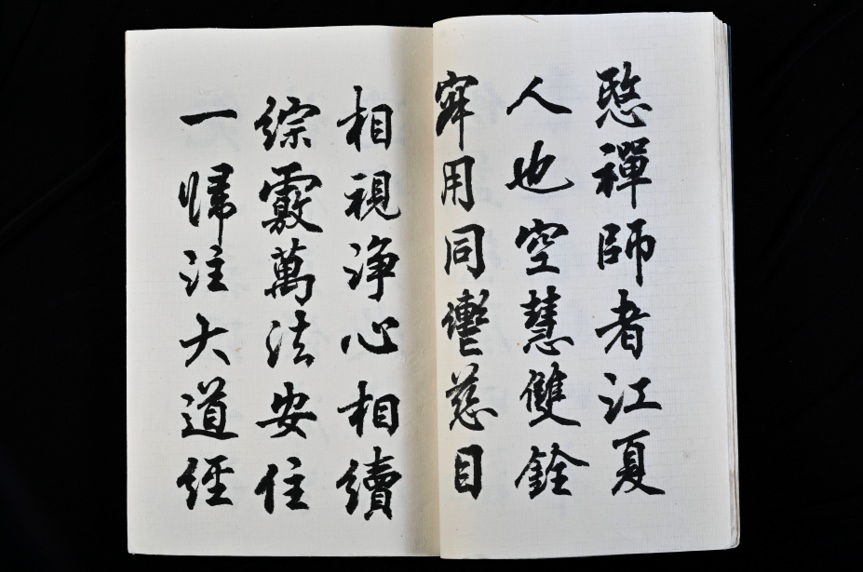 愍禪師者江夏
人也空慧雙銓
寂用同鑾慈目
相視淨心相續
綜覈萬法安住
一歸注大道經